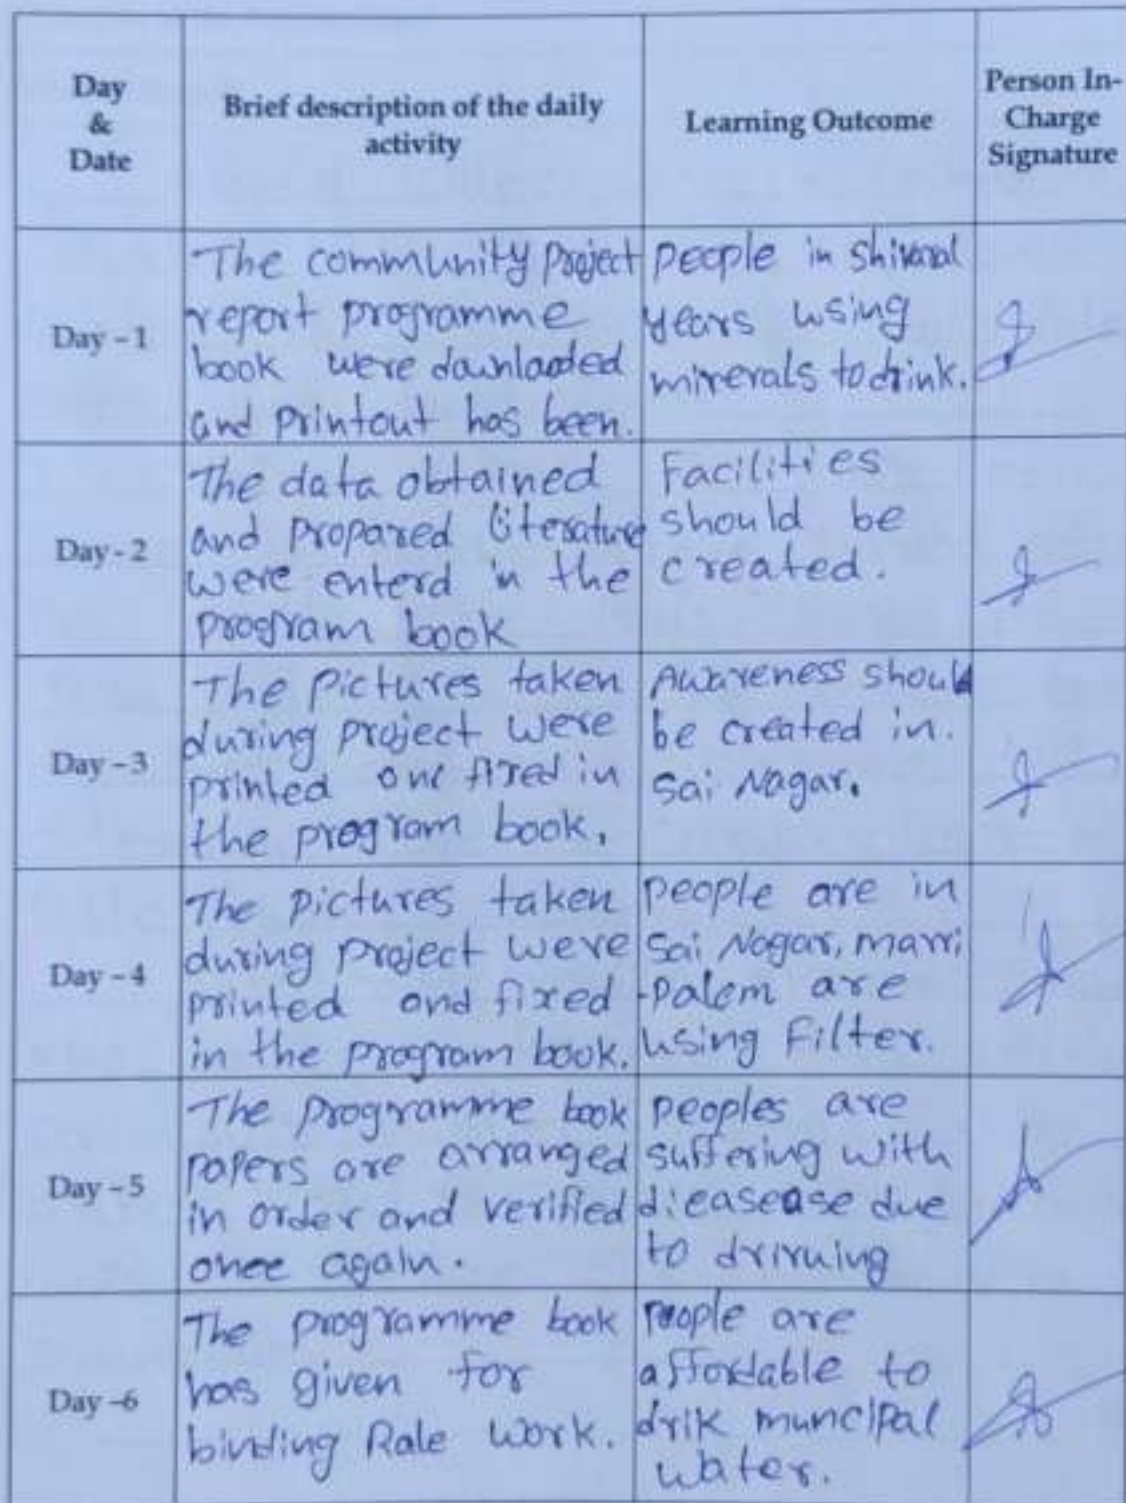 Day
&
Date
Brief description of the daily
activity
Learning Outcome
Person In-
Charge
Signature
Day – 1
The community project
report programme
book were downloaded
and printout has been.
people in
years using
minerals to drink.
Day - 2
The data obtained
and propared literature
were enterd in the
program book
Facilities
should be
created.
Day – 3
The pictures taken
during project were
printed fixed in
the program book.
Awareness should
be created in.
Sai Nagar.
Day – 4
The pictures taken
during project were
printed and fixed
in the program book.
people are in
Sai Nagar, marri
-palem are
using Filter.
Day – 5
The programme book
papers are arranged
in order and verified
once again.
peoples are
suffering with
dieasease due
to
Day –6
The programme book
has given for
binding Rale work.
people are
affordable to
drik muncipal
water.